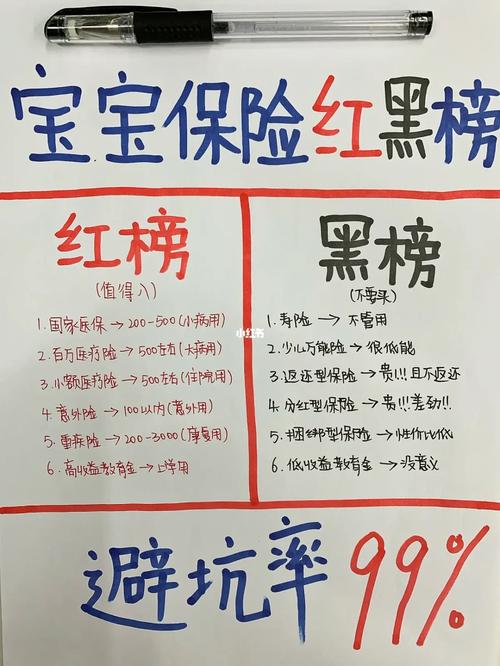 宝宝保险红黑榜
红榜
(值得入)
1.国家医保→200-500(小病用)
2.百万医疗险→500左右(大病用)
3.小额医疗险→500左右(住院用)
4.意外险→100以内(意外用)
5.重疾险→200-3000(康复用)
6.高收益教育金→上学用
小红书
黑榜
(不要买)
1.寿险→不管用
2.少儿万能险→很低能
3.返还型保险→贵!!!且不返还
4.分红型保险→贵!!!差劲!!!
5.捆绑型保险→性价比低
6.低收益教育金→没意义
避坑率99%